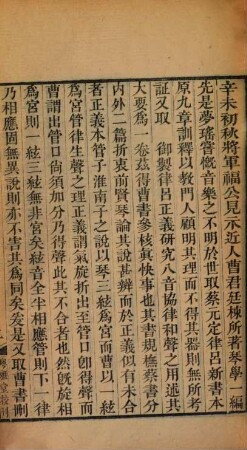 辛未初秋將軍福公見示近人曹君廷棟所著琴學一編
先是夢瑤嘗慨音樂之不明於世取蔡元定律呂新書本
原九章訓釋以教門人顧明其理而不得其器則無所考
証又取 御製律呂正義研究八音協律和聲之用述其
大要為一卷茲得曹書參核眞快事也其書規橅蔡書分
内外二篇折衷前賢琴論其說甚辨而於正義似有未合
者正義本管子淮南子之說以琴三絃為宮而曹以一絃
為宮管律生聲之理正義謂氣旋折出至管口卽得聲而
曹謂出管口尚須加分乃得聲此其不合者也然旣旋相
為宮則一絃三絃無非宮矣絃音全半相應管則下一律
乃相應固無異說則亦不害其為同矣爰是又取曹書刪
粤雅堂叢書